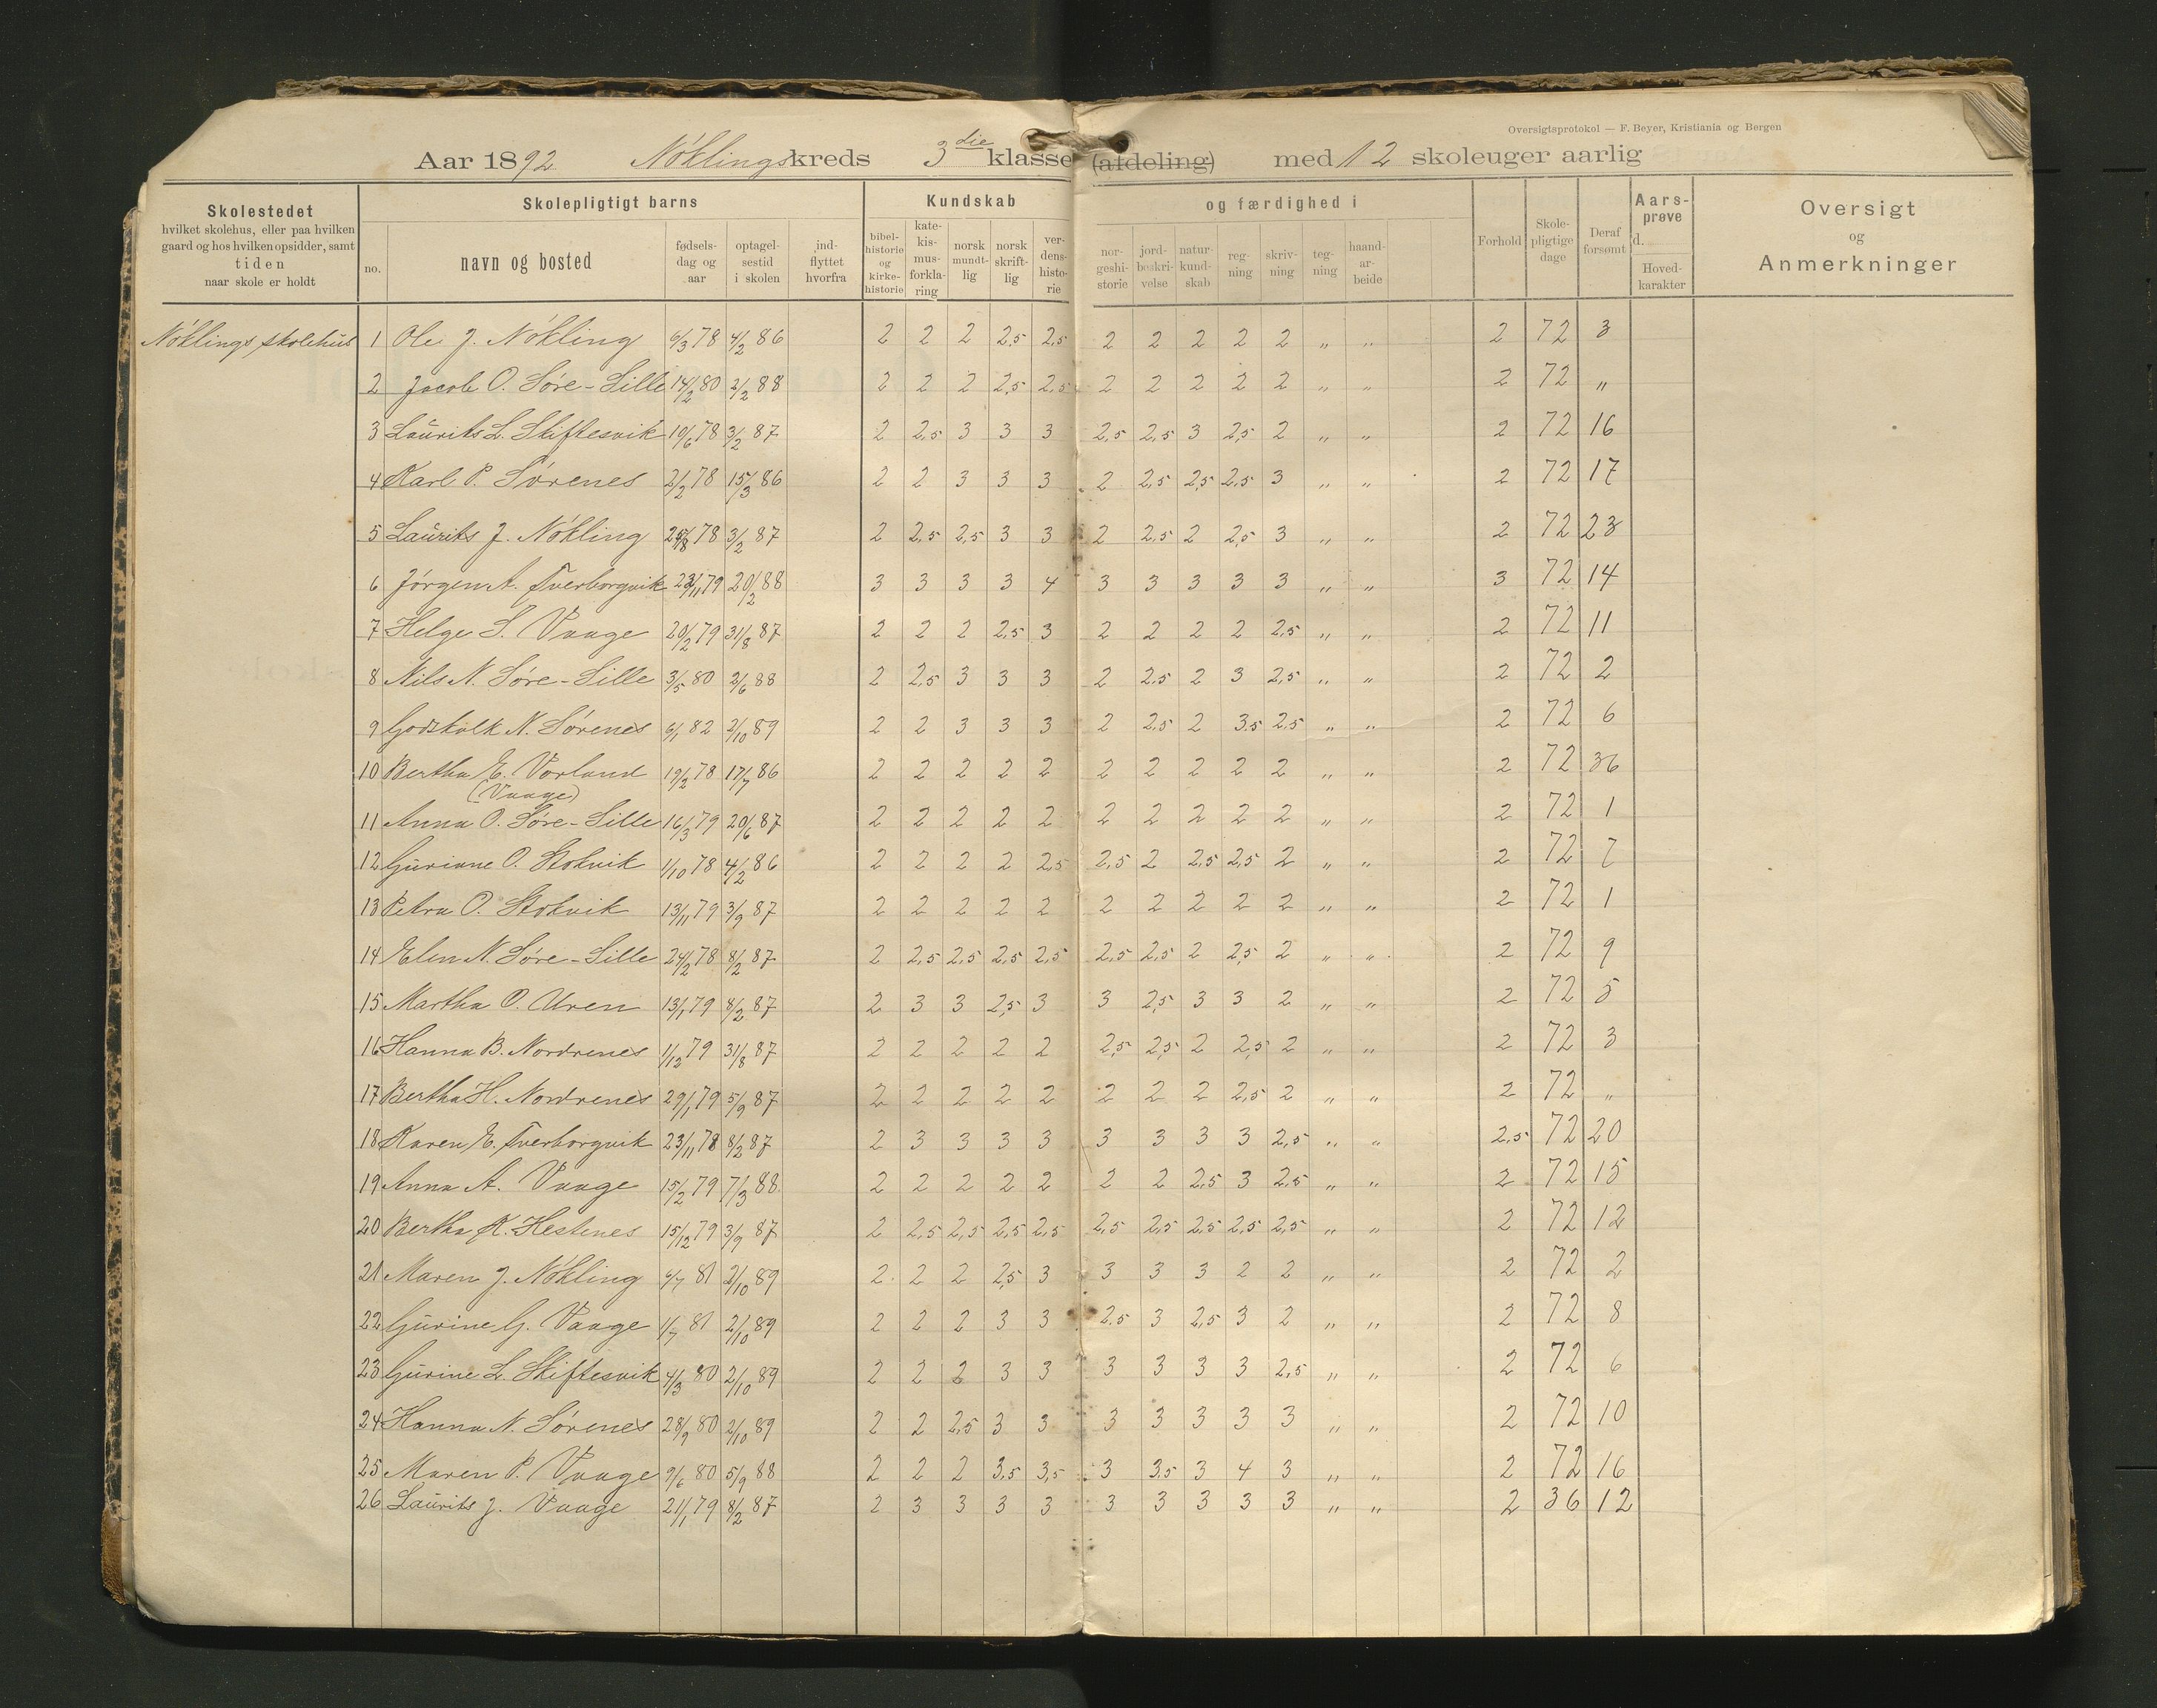 Oversigtsprotokol — F. Beyer, Kristiania og Bergen
Aar 1892 Nøklings kreds 3die klasse (afdeling) med 12 skoleuger aarlig
Skolestedet hvilket skolehus, eller paa hvilken gaard og hos hvilken opsidder, samt tiden naar skole er holdt
Skolepligtigt barns
no. navn og bosted fødselsdag og aar optagelsestid i skolen indflyttet hvorfra
Kundskab og færdighed i
bibelhistorie og kirkehistorie katekismusforklaring norsk mundtlig norsk skriftlig verdenshistorie norgeshistorie jordbeskrivelse naturkundskab regning skrivning tegning haandarbeide
Forhold Skolepligtige dage Deraf forsømt Aarsprøve d. Hovedkarakter
Oversigt og Anmerkninger
Nøklings skolehus 1 Ole J. Nøkling 6/3 78 4/2 86 2 2 2 2,5 2,5 2 2 2 2 2 „ „ 2 72 3
2 Jacob O. Søre-Lille 14/2 80 2/2 88 2 2 2 2,5 2,5 2 2 2 2 2 „ „ 2 72 „
3 Laurits L. Skiftesvik 10/6 78 3/2 87 2 2,5 3 3 3 2,5 2,5 3 2,5 2 „ „ 2 72 16
4 Karl P. Sørenes 2/2 78 15/3 86 2 2 3 3 3 2 2,5 2,5 2,5 3 „ „ 2 72 17
5 Laurits J. Nøkling 25/8 78 3/2 87 2 2,5 2,5 3 3 2 2,5 2 2,5 3 „ „ 2 72 23
6 Jørgen A. Tverborgvik 23/11 79 20/2 88 3 3 3 3 4 3 3 3 3 3 „ „ 3 72 14
7 Helge S. Vaage 20/2 79 31/8 87 2 2 2 2,5 3 2 2 2 2 2,5 „ „ 2 72 11
8 Nils N. Søre-Lille 3/5 80 2/6 88 2 2,5 3 3 3 2 2,5 2 3 2,5 „ „ 2 72 2
9 Godskalk N. Sørenes 6/1 82 2/10 89 2 2 3 3 3 2 2,5 2 3,5 2,5 „ „ 2 72 6
10 Bertha E. Vorland 19/2 78 17/7 86 2 2 2 2 2 2 2 2 2 2 „ „ 2 72 36
(Vaage)
11 Anna O. Søre-Lille 16/3 79 20/6 87 2 2 2 2 2 2 2 2 2 2 „ „ 2 72 1
12 Guriane O. Stokvik 1/10 78 4/2 86 2 2 2 2 2,5 2,5 2 2,5 2,5 2 „ „ 2 72 7
13 Petra O. Stokvik 13/11 79 3/9 87 2 2 2 2 2 2 2 2 2 2 „ „ 2 72 1
14 Elen N. Søre-Lille 24/2 78 8/2 87 2 2,5 2,5 2,5 2,5 2,5 2,5 2 2,5 2 „ „ 2 72 9
15 Martha O. Uren 13/1 79 8/2 87 2 3 3 2,5 3 3 2,5 3 3 2 „ „ 2 72 5
16 Hanna B. Nordrenes 1/12 79 31/8 87 2 2 2 2 2 2,5 2,5 2 2,5 2 „ „ 2 72 3
17 Bertha H. Nordrenes 29/1 79 5/9 87 2 2 2 2 2 2 2 2 2,5 2 „ „ 2 72 „
18 Karen E. Tverborgvik 23/11 78 8/2 87 2 3 3 3 3 3 3 3 3 2,5 „ „ 2,5 72 20
19 Anna A. Vaage 15/2 79 7/3 88 2 2 2 2 2 2 2 2,5 3 2,5 „ „ 2 72 15
20 Bertha K. Hestenes 15/12 79 3/9 87 2 2,5 2,5 2,5 2,5 2,5 2,5 2,5 2,5 2,5 „ „ 2 72 12
21 Maren J. Nøkling 4/7 81 2/10 89 2 2 2 2,5 3 3 3 3 2 2 „ „ 2 72 2
22 Gurine G. Vaage 1/7 81 2/10 89 2 2 2 3 3 2,5 3 2,5 3 2 „ „ 2 72 8
23 Gurine L. Skiftesvik 4/3 80 2/10 89 2 2 2 3 3 3 3 3 3 2,5 „ „ 2 72 6
24 Hanna N. Sørenes 28/9 80 2/10 89 2 2 2,5 3 3 3 3 3 3 3 „ „ 2 72 10
25 Maren P. Vaage 9/6 80 5/9 88 2 2 2 3,5 3,5 3 3,5 3 4 3 „ „ 2 72 16
26 Laurits J. Vaage 21/1 79 8/2 87 2 3 3 3 3 3 3 3 3 3 „ „ 2 36 12